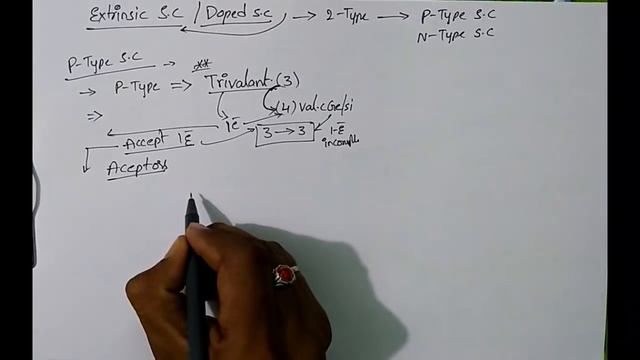 Extrinsic S.C / Doped S.C → 2-Type → P-Type S.C
N-Type S.C
P-Type S.C →
→ P-Type ⇒ Trivalant (3)
⇒ (4) val.c Ge/si
1Ē 3 → 3 1-Ē
Accept 1Ē incompl
Aceptors